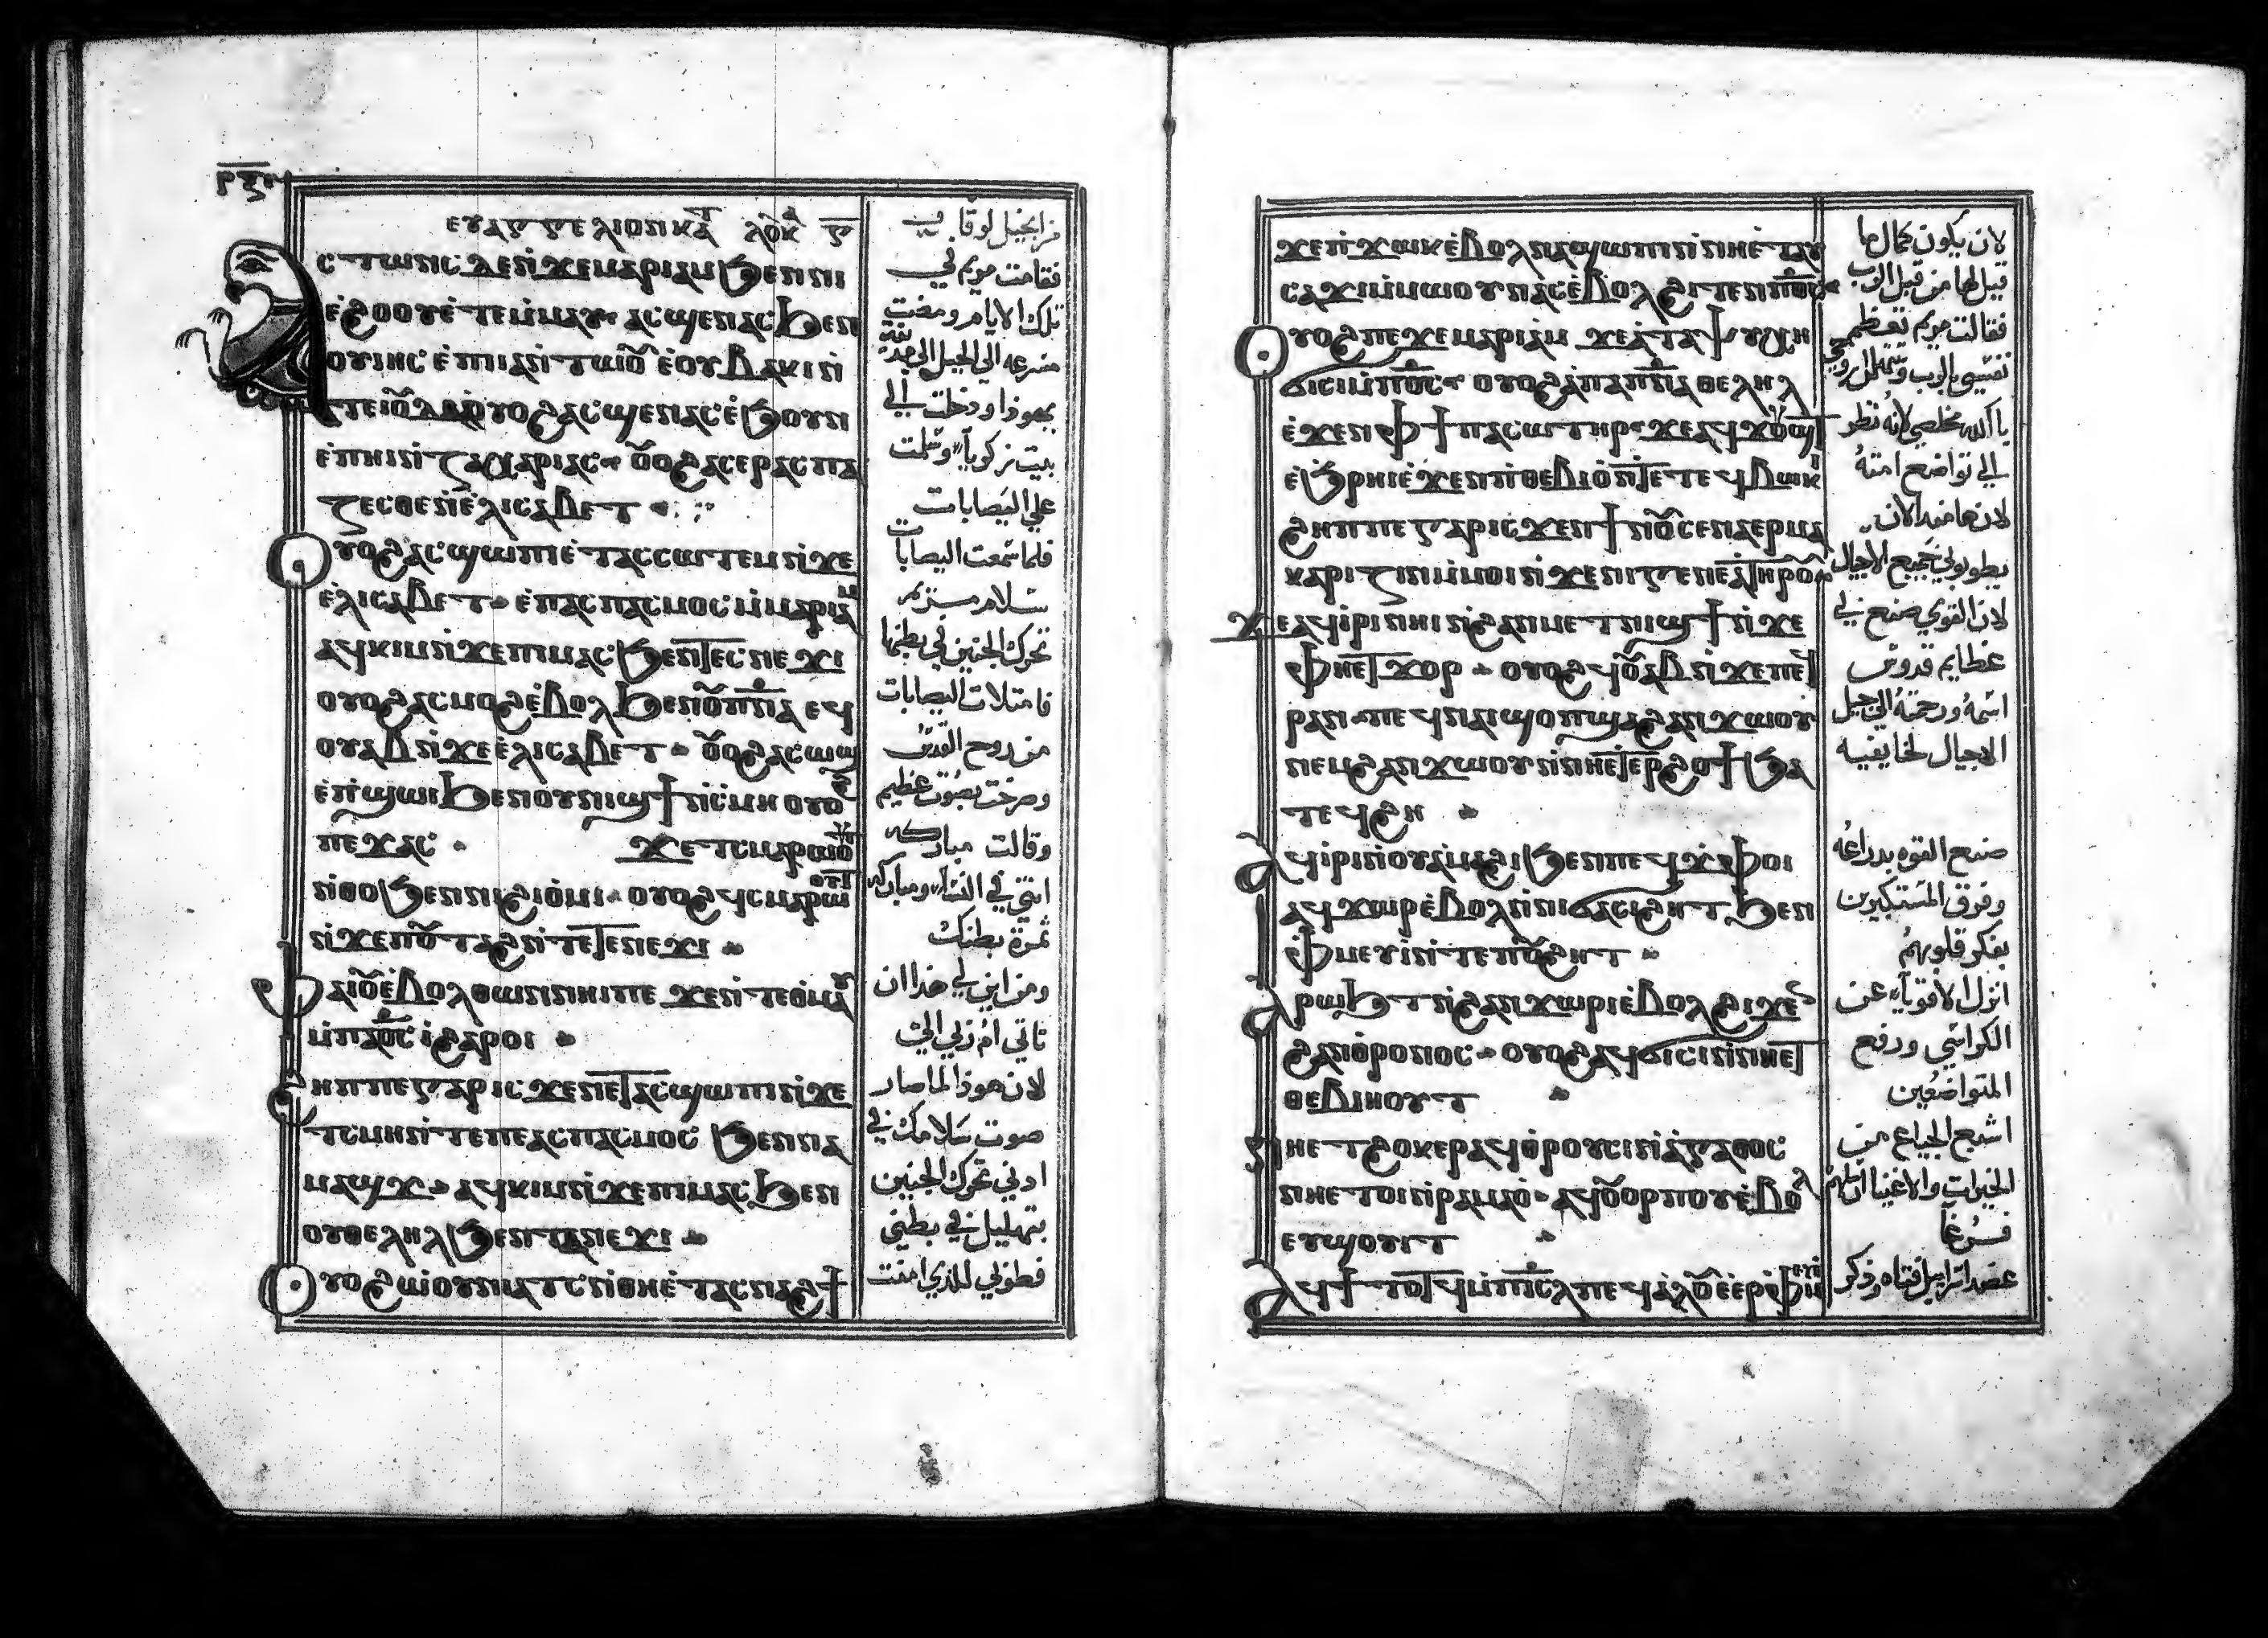 ⲣⲝ
ⲉⲩⲁⲅⲅⲉⲗⲓⲟⲛ ⲕⲁⲧ ⲗⲟⲩⲕ ⲅ
ⲁⲥⲧⲱⲛⲥ ⲇⲉ ⲛϫⲉ ⲙⲁⲣⲓⲁⲙ ϧⲉⲛ ⲛⲓ
ⲉϩⲟⲟⲩ ⲉⲧⲉⲙⲙⲁⲩ ⲁⲥϣⲉⲛⲁⲥ ϧⲉⲛ
ⲟⲩⲓⲏⲥ ⲉⲡⲓⲁⲛⲧⲱⲟⲩ ⲉⲟⲩⲃⲁⲕⲓ ⲛ
ⲧⲉ ⲓⲟⲩⲇⲁ ⲟⲩⲟϩ ⲁⲥϣⲉⲛⲁⲥ ⲉϧⲟⲩⲛ
ⲉⲡⲏⲓ ⲛⲍⲁⲭⲁⲣⲓⲁⲥ ⲟⲩⲟϩ ⲁⲥⲉⲣⲁⲥⲡⲁ
ⲍⲉⲥⲑⲉ ⲛⲉⲗⲓⲥⲁⲃⲉⲧ
ⲟⲩⲟϩ ⲁⲥϣⲱⲡⲓ ⲉⲧⲁⲥⲥⲱⲧⲉⲙ ⲛϫⲉ
ⲉⲗⲓⲥⲁⲃⲉⲧ ⲉⲡⲁⲥⲡⲁⲥⲙⲟⲥ ⲙⲙⲁⲣⲓⲁⲙ
ⲁϥⲕⲓⲙ ⲛϫⲉ ⲡⲓⲙⲁⲥ ϧⲉⲛ ⲧⲉⲥⲛⲉϫⲓ
ⲟⲩⲟϩ ⲁⲥⲙⲟϩ ⲉⲃⲟⲗ ϧⲉⲛ ⲟⲩⲡⲛⲁ ⲉϥ
ⲟⲩⲁⲃ ⲛϫⲉ ⲉⲗⲓⲥⲁⲃⲉⲧ ⲟⲩⲟϩ ⲁⲥⲱϣ
ⲉⲡϣⲱⲓ ϧⲉⲛ ⲟⲩⲛⲓϣϯ ⲛⲥⲙⲏ ⲟⲩⲟϩ
ⲡⲉϫⲁⲥ ϫⲉ ⲧⲥⲙⲁⲣⲱⲟⲩⲧ
ⲛⲑⲟ ϧⲉⲛ ⲛⲓϩⲓⲟⲙⲓ ⲟⲩⲟϩ ϥⲥⲙⲁⲣⲱⲟⲩⲧ
ⲛϫⲉ ⲡⲟⲩⲧⲁϩ ⲛⲧⲉ ⲧⲉⲛⲉϫⲓ
ⲫⲁⲓ ⲟⲩⲉⲃⲟⲗ ⲑⲱⲛ ⲛⲏⲓ ⲡⲉ ϫⲉ ⲛⲧⲉ ⲑⲙⲁⲩ
ⲙⲡⲁⲟⲥ ⲓ ϩⲁⲣⲟⲓ
ϩⲏⲡⲡⲉ ⲅⲁⲣ ⲓⲥϫⲉⲛ ⲉⲧⲁⲥϣⲱⲡⲓ ⲛϫⲉ
ⲧⲥⲙⲏ ⲛⲧⲉ ⲡⲉⲁⲥⲡⲁⲥⲙⲟⲥ ϧⲉⲛ ⲛⲁ
ⲙⲁϣϫ ⲁϥⲕⲓⲙ ⲛϫⲉ ⲡⲓⲙⲁⲥ ϧⲉⲛ
ⲟⲩⲑⲉⲗⲏⲗ ϧⲉⲛ ⲧⲁⲛⲉϫⲓ
ⲟⲩⲟϩ ⲱⲟⲩⲛⲓⲁⲧⲥ ⲛⲑⲏ ⲉⲧⲁⲥⲛⲁϩϯ
من انجيل لوقا
فقامت مريم في
تلك الايام ومضت
مسرعه الي الجبل الي مدينة
يهوذا ودخلت الي
بيت زكريآ وسلمت
علي اليصابات
فلما سمعت اليصابات
سلام مريم
تحرك الجنين في بطنها
فامتلات اليصابات
من روح القدس
وصرخت بصوت عظيم
وقالت مباركه
انتي في النسآ ومباركه
ثمرة بطنك
ومن اين لي هذا ان
تاتي ام ربي الي
لان هوذا لما صار
صوت سلامك في
ادني تحرك الجنين
بتهليل في بطني
فطوبي للذي امنت
ϫⲉ ⲛϫⲱⲕ ⲉⲃⲟⲗ ⲛⲁϣⲱⲡⲓ ⲛⲛⲏ ⲉⲧⲁⲩ
ⲥⲁϫⲓ ⲙⲙⲱⲟⲩ ⲛⲁⲥ ⲉⲃⲟⲗ ϩⲓⲧⲉⲛ ⲡⲟⲥ
ⲟⲩⲟϩ ⲡⲉϫⲉ ⲙⲁⲣⲓⲁⲙ ϫⲉ ⲁ ⲧⲁⲯⲩⲭⲏ
ϭⲓⲥⲓ ⲙⲡⲟⲥ ⲟⲩⲟϩ ⲁ ⲡⲁⲡⲛⲁ ⲑⲉⲗⲏⲗ
ⲉϫⲉⲛ ⲫϯ ⲡⲁⲥⲱⲧⲏⲣ ϫⲉ ⲁϥϫⲟⲩϣⲧ
ⲉϧⲣⲏⲓ ⲉϫⲉⲛ ⲡⲑⲉⲃⲓⲟ ⲛⲧⲉ ⲧⲉϥⲃⲱⲕⲓ
ϩⲏⲡⲡⲉ ⲅⲁⲣ ⲓⲥϫⲉⲛ ϯⲛⲟⲩ ⲥⲉⲛⲁⲉⲣⲙⲁ
ⲕⲁⲣⲓⲍⲓⲛ ⲙⲙⲟⲓ ⲛϫⲉ ⲛⲓⲅⲉⲛⲉⲁ ⲧⲏⲣⲟⲩ
ϫⲉ ⲁϥⲓⲣⲓ ⲛⲏⲓ ⲛϩⲁⲛⲙⲉⲧⲛⲓϣϯ ⲛϫⲉ
ⲫⲏ ⲉⲧϫⲟⲣ ⲟⲩⲟϩ ϥⲟⲩⲁⲃ ⲛϫⲉ ⲡⲉϥ
ⲣⲁⲛ ⲡⲉϥⲛⲁⲓ ϣⲟⲡ ϣⲁ ϩⲁⲛϫⲱⲟⲩ
ⲛⲉⲙ ϩⲁⲛϫⲱⲟⲩ ⲛⲛⲏ ⲉⲧⲉⲣϩⲟϯ ϧⲁ
ⲧⲉϥϩⲏ
ⲁϥⲓⲣⲓ ⲛⲟⲩⲁⲙⲁϩⲓ ϧⲉⲛ ⲡⲉϥϫⲫⲟⲓ
ⲁϥϫⲱⲣ ⲉⲃⲟⲗ ⲛⲛⲓϭⲁⲥⲓϩⲏⲧ ϧⲉⲛ
ⲫⲙⲉⲩⲓ ⲛⲧⲉ ⲡⲟⲩϩⲏⲧ
ⲁϥⲣⲱϧⲧ ⲛϩⲁⲛϫⲱⲣⲓ ⲉⲃⲟⲗ ϩⲓϫⲉⲛ
ϩⲁⲛⲑⲣⲟⲛⲟⲥ ⲟⲩⲟϩ ⲁϥϭⲓⲥⲓ ⲛⲛⲏ ⲉⲧ
ⲑⲉⲃⲓⲏⲟⲩⲧ
ⲛⲏ ⲉⲧϩⲟⲕⲉⲣ ⲁϥⲑⲣⲟⲩⲥⲓ ⲛⲁⲅⲁⲑⲟⲥ
ⲛⲏ ⲉⲧⲟⲓ ⲛⲣⲁⲙⲁⲟ ⲁϥⲟⲩⲟⲣⲡⲟⲩ ⲉⲃⲟⲗ
ⲉⲩϣⲟⲩⲓⲧ
ⲁϥϯⲧⲟⲧϥ ⲙⲡⲓⲥⲗ ⲡⲉϥⲁⲗⲟⲩ ⲉⲉⲣⲫⲙⲉⲩⲓ
لان يكون كمال ما
قيل لها من قبل الرب
فقالت مريم تعظم
نفسي بالرب وتهلل روحي
بالله مخلصي لانه نظر
الي تواضع امته
لان ها منذ الان
يطوبوني جميع الاجيال
لان القوي صنع لي
عظايم قدوس
اسمه ورحمته الي جيل
الاجيال لخايفيه
صنع القوه بدراعه
وفرق المستكبرين
بفكر قلوبهم
انزل الاقويآ عن
الكراسي ورفع
المتواضعين
اشبع الجياع من
الخيرات والاغنيا ارسلهم
فرغا
عضد اسراييل فتاه وذكر